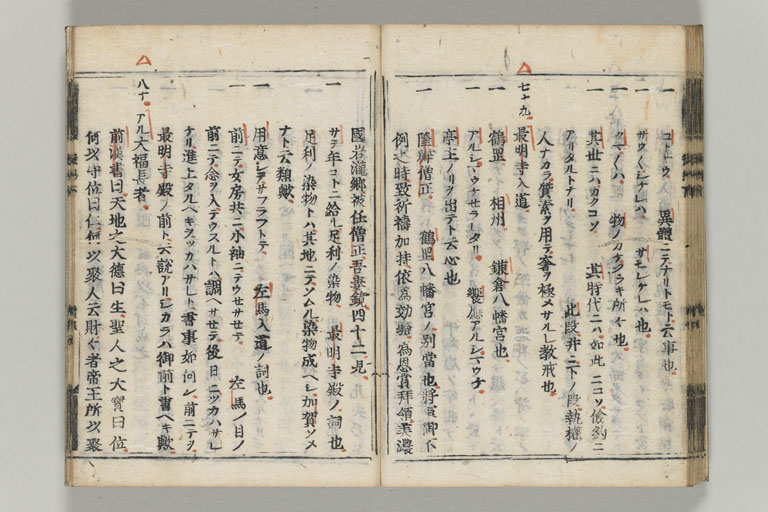 一 コトヤウ 異體ニテナリトモト云事也
一 サウ〱シケレハ サモシケレハ也
一 クマ〱ハ 物ノカナヅラキ所〱也
一 其世ニハカクコソ 其時代ニハ如此ニコソ儉約ニ
アリタルトナリ 此段并ニ下ノ段執權ノ
人ナカラ質素ヲ用テ奢ヲ極メサルレ教戒也
七十九 最明寺入道
一 鶴罡 相州 鎌倉八幡宮也
一 アルシマウケサラレタリ 饗應アルシマウケ
亭主ノリヲ出テト云心也
一 隆辨僧正 鶴罡八幡宮ノ別當也將軍御不
例之時致祈禱加持依為効驗為恩賞拜領美濃
國岩瀧鄉被任僧正吾妻鏡四十二見
一 サテ年コトニ給ル足利ノ染物 最明寺殿ノ詞也
足利ノ染物トハ其地ニテソムル染物成ヘシ加賀ソメ
ナト云類歟
一 用意シテサフラフトテ 左馬入道ノ詞也
一 前ニテ女房共ニ小袖ニテウセサセテ 左馬ノ日ノ
前ニテ念ヲ入テウスルトハ調ヘサセテ後日ニツカハサレ
ナリ進上タルヘキヲツカハサレト書事如何シ前ニテヲ
最明寺殿ノ前ト云說アリシカラハ御前ト書ヘキ歟
八十 アル大福長者
前漢書曰天地之大德曰生聖人之大寳曰位
何以守位曰仁何以聚人云財〱者帝王所以聚